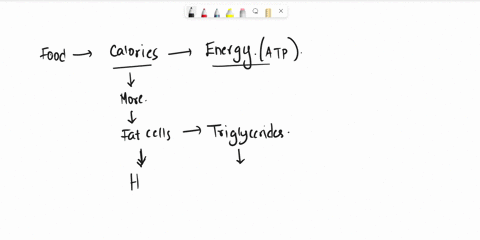 Food → Calories → Energy. (ATP).
↓
More.
↓
Fat cells → Triglycerides.
↓ ↓
H